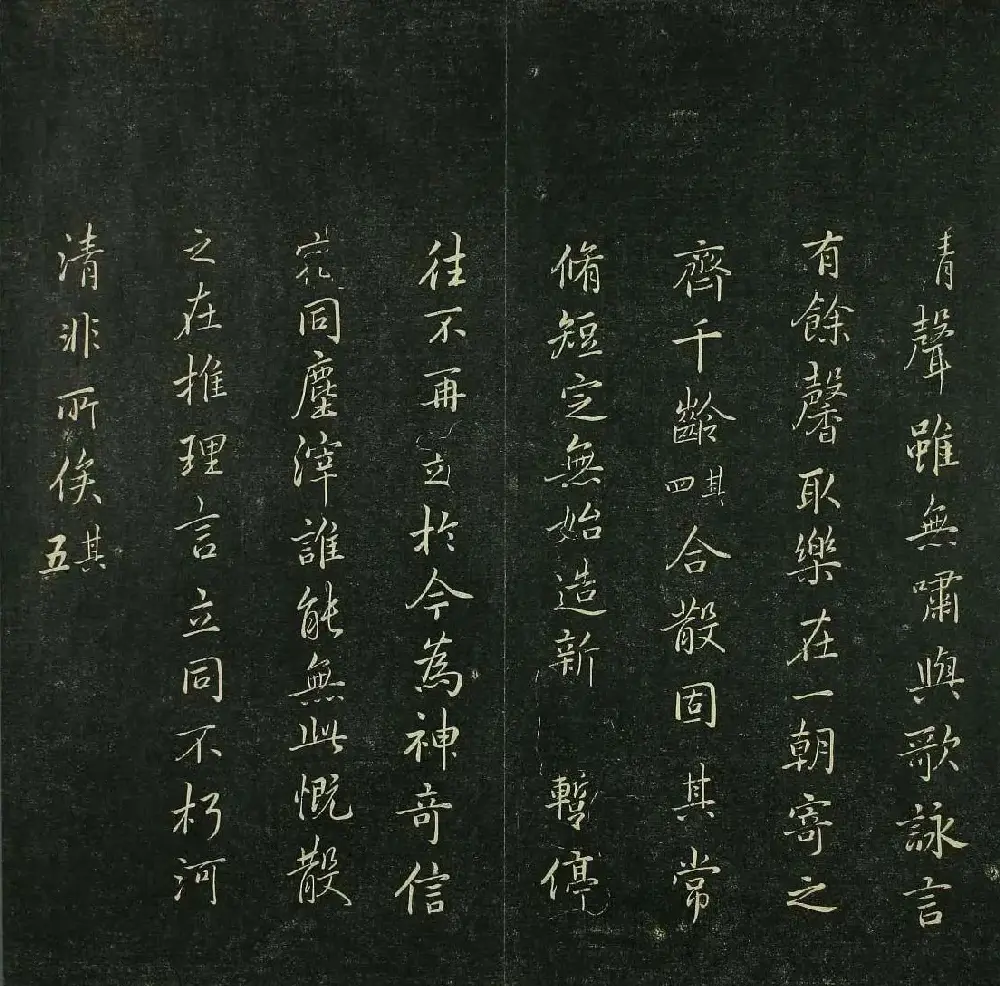 清聲雖無嘯與歌詠言
有餘馨取樂在一朝寄之
齊千齡其四合散固其常
脩短定無始造新 暫停
往不再 立於今為神奇信
宿同塵滓誰能無此慨散
之在推理言立同不朽河
清非所俟其五